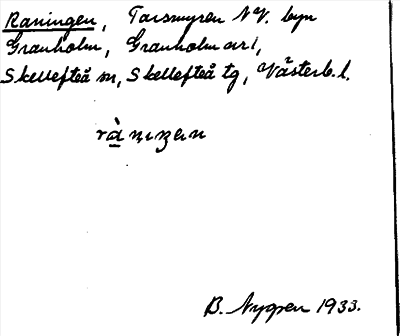 Raningen, Tarsmyren NV. byn
Granholm, Granholm arl,
Skellefteå sn, Skellefteå tg, Västerb. l.
B. Nygren 1933.